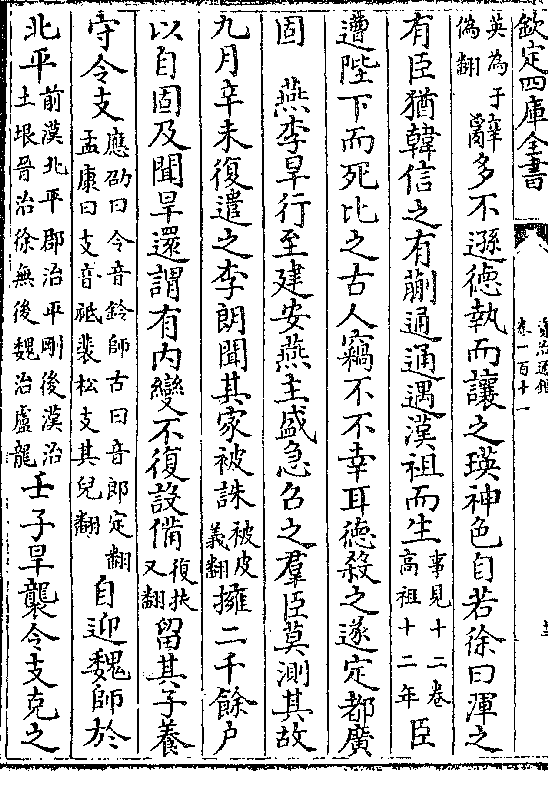 欽定四庫全書　資治通鑑卷一百十一
英為于偽翻辭多不遜德執而讓之瑛神色自若徐曰渾之
有臣猶韓信之有蒯通通遇漢祖而生事見十二卷高祖十二年臣
遭陛下而死比之古人竊不不幸耳德殺之遂定都廣
固　燕李旱行至建安燕主盛急召之羣臣莫測其故
九月辛未復遣之李朗聞其家被誅被皮義翻擁二千餘户
以自固及聞旱還謂有内變不復設備復扶又翻留其子養
守令支應劭曰令音鈴師古曰音郎定翻孟康曰支音祗裴松支其兒翻自迎魏師於
北平前漢北平郡治平剛後漢治土垠晉治徐無後魏治盧龍壬子旱襲令支克之